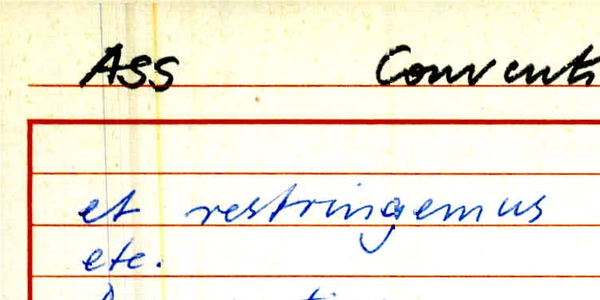 Ass Convents
et restringemus
etc.